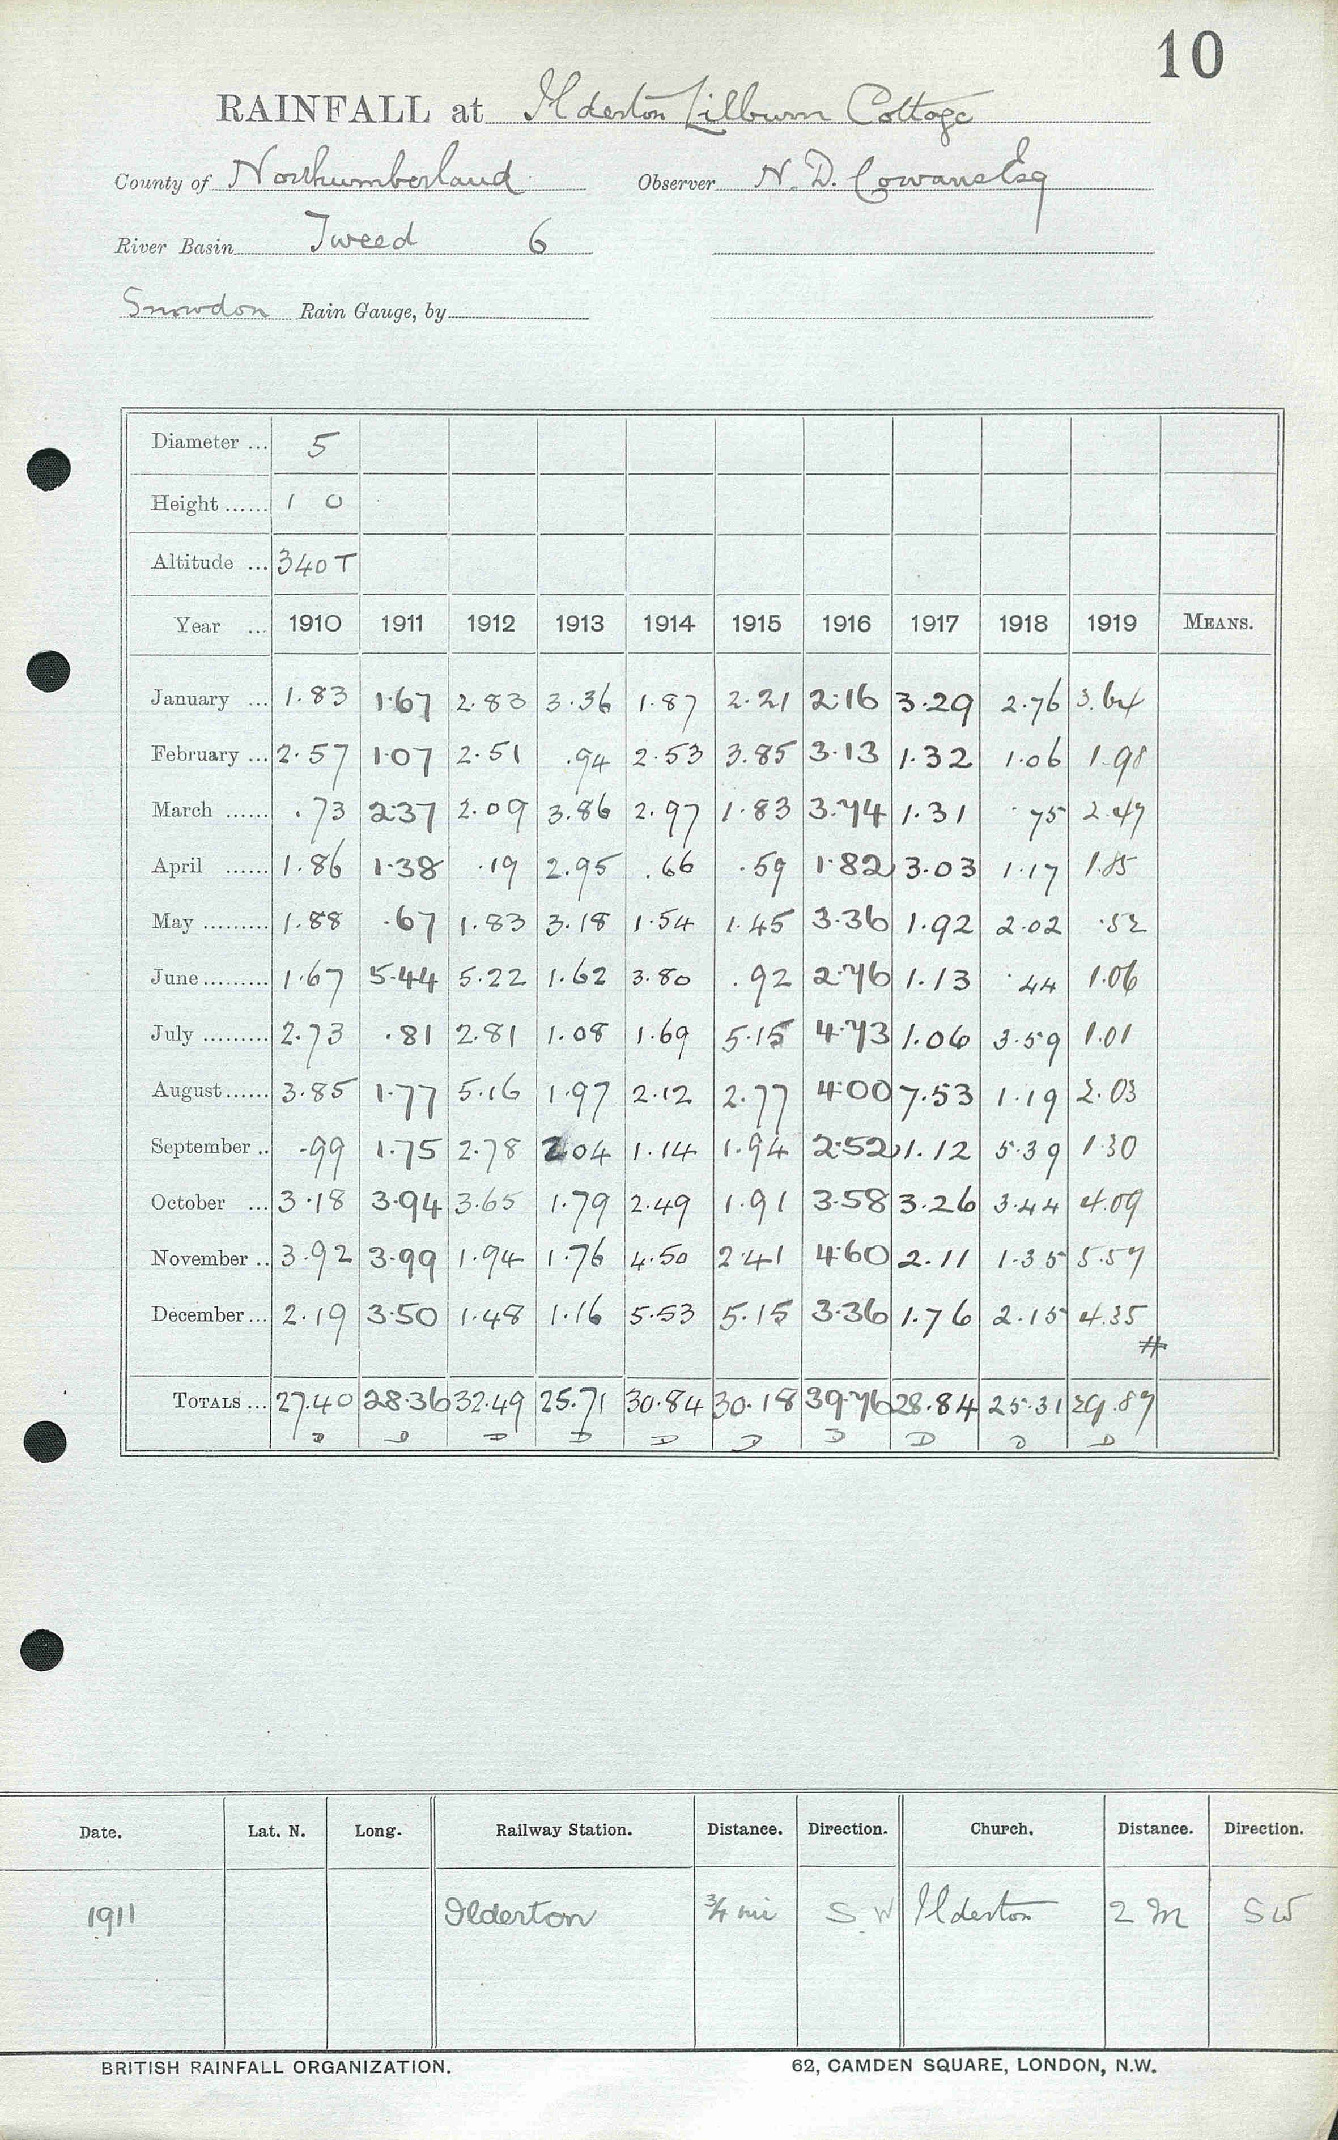 10
RAINFALL at Ilderton Lilburn Cottage
County of Northumberland Observer N. D. Cowans Esq
River Basin Tweed 6
Snowdon Rain Gauge, by
Diameter ... 5
Height ...... 1 0
Altitude ... 340 T
Year ... 1910 1911 1912 1913 1914 1915 1916 1917 1918 1919 MEANS.
January ... 1.83 1.67 2.83 3.36 1.87 2.21 2.16 3.29 2.76 3.64
February ... 2.57 1.07 2.51 .94 2.53 3.85 3.13 1.32 1.06 1.98
March ...... .73 2.37 2.09 3.86 2.97 1.83 3.74 1.31 .75 2.47
April ...... 1.86 1.38 .19 2.95 .66 .59 1.82 3.03 1.17 1.85
May ......... 1.88 .67 1.83 3.18 1.54 1.45 3.36 1.92 2.02 .52
June ......... 1.67 5.44 5.22 1.62 3.80 .92 2.76 1.13 .44 1.06
July ......... 2.73 .81 2.81 1.08 1.69 5.15 4.73 1.06 3.59 1.01
August ...... 3.85 1.77 5.16 1.97 2.12 2.77 4.00 7.53 1.19 2.03
September .. .99 1.75 2.78 2.04 1.14 1.94 2.52 1.12 5.39 1.30
October ... 3.18 3.94 3.65 1.79 2.49 1.91 3.58 3.26 3.44 4.09
November .. 3.92 3.99 1.94 1.76 4.50 2.41 4.60 2.11 1.35 5.57
December ... 2.19 3.50 1.48 1.16 5.53 5.15 3.36 1.76 2.15 4.35
#
TOTALS ... 27.40 28.36 32.49 25.71 30.84 30.18 39.76 28.84 25.31 29.87
D D D D D D D D D D
Date. Lat. N. Long. Railway Station. Distance. Direction. Church. Distance. Direction.
1911 Ilderton 3/4 mi S W Ilderton 2 M SW
BRITISH RAINFALL ORGANIZATION. 62, CAMDEN SQUARE, LONDON, N.W.